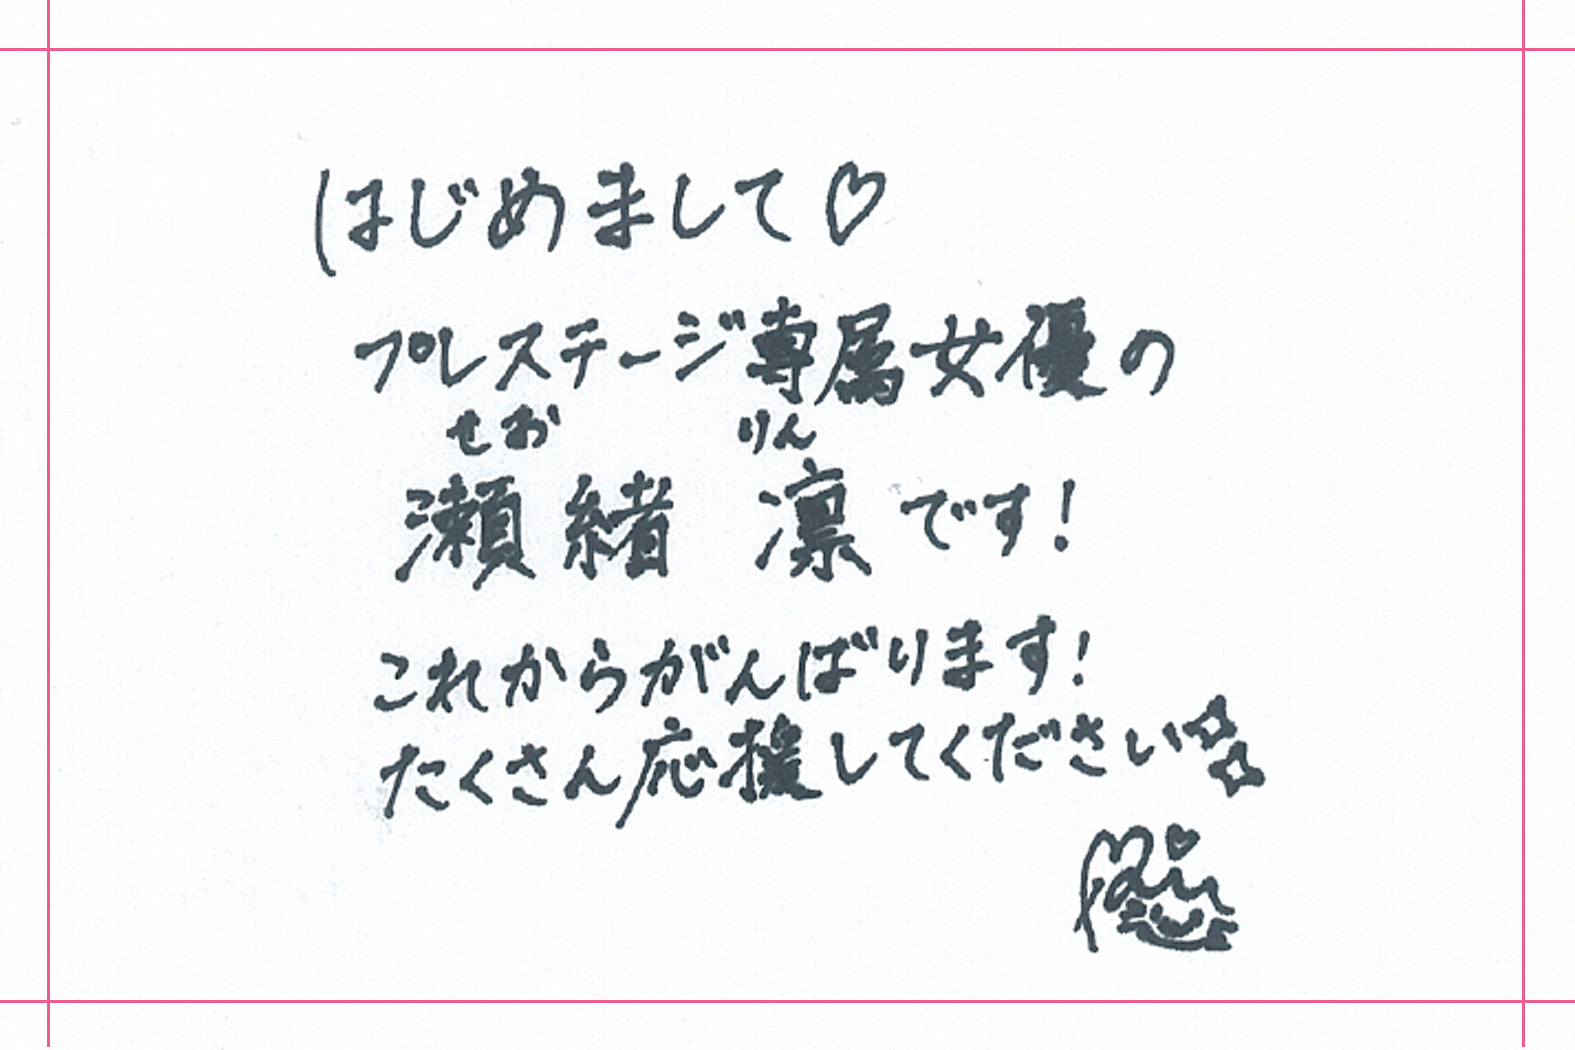 はじめまして♡
プレステージ専属女優の
せお りん
瀬緒 凛です！
これからがんばります！
たくさん応援してください
Rin